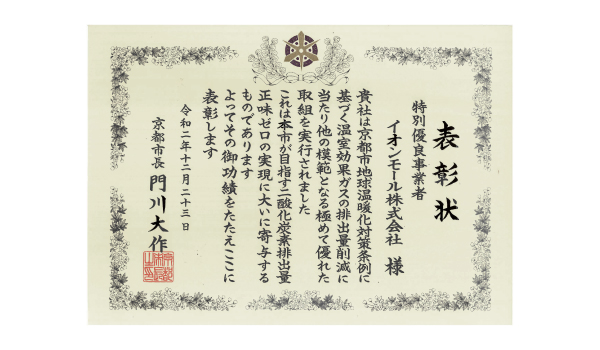 表彰状
特別優良事業者
イオンモール株式会社 様
貴社は京都市地球温暖化対策条例に
基づく温室効果ガスの排出量削減に
当たり他の模範となる極めて優れた
取組を実行されました
これは本市が目指す二酸化炭素排出量
正味ゼロの実現に大いに寄与する
ものであります
よってその御功績をたたえここに
表彰します
令和二年十二月二十三日
京都市長 門川大作